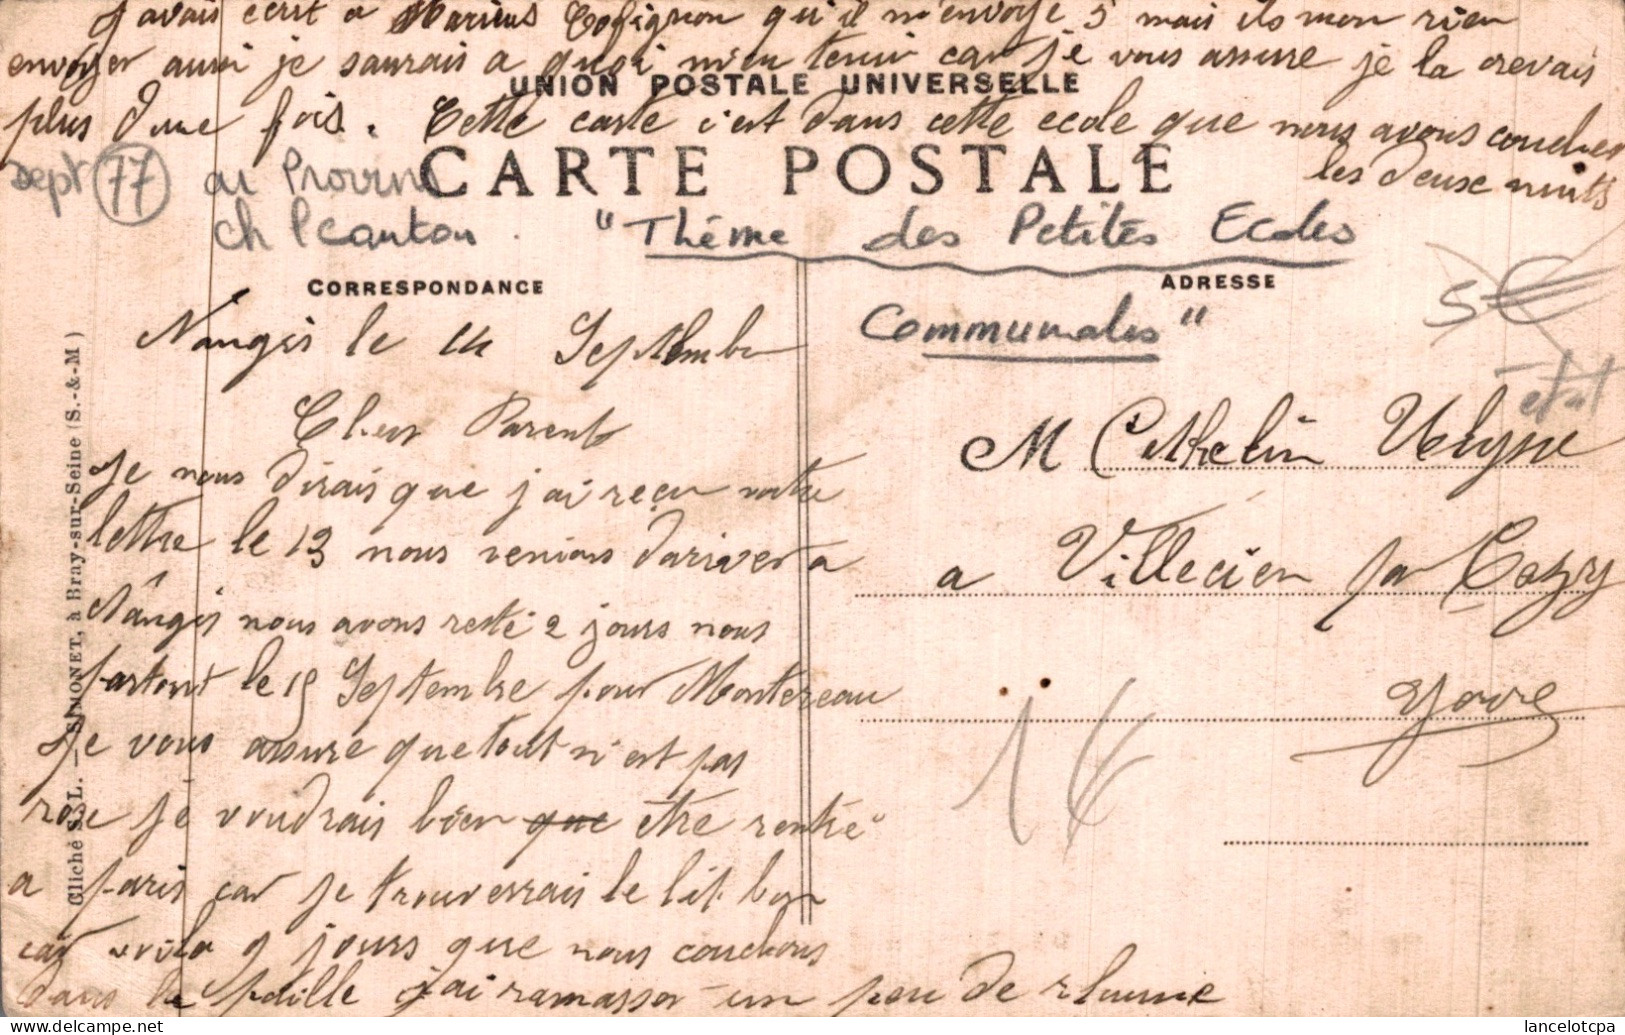 J'avais ecrit a Marius Cofignon qu'il m'envoye 5 mais ils mon rien
envoyer aussi je saurais a quoi m'en tenir car je vous assure je la crevais
UNION POSTALE UNIVERSELLE
plus d'une fois. Cette carte c'est dans cette ecole que nous avons coucher
les deux nuits
CARTE POSTALE
Dept 77 ar Provins
ch l canton . "Thème des Petites Ecoles
Communales"
CORRESPONDANCE
ADRESSE
5€
1€
Nangis le 14 Septembre
Chers Parents
Je vous dirais que j'ai reçu votre
lettre le 13 nous venions d'ariver a
Nangis nous avons resté 2 jours nous
partont le 15 Septembre pour Montereau
Je vous assure que tout n'est pas
rose je voudrais bien que être rentré
a paris car je trouverrais le lit bon
car voila 9 jours que nous couchons
dans la paille j'ai ramasser un peu de rhume
M Cathelin Ulysse
a Villecien par Cezy
Yonne
Cliché S. L. — SIMONET, à Bray-sur-Seine (S.-&-M)
lancelotcpa